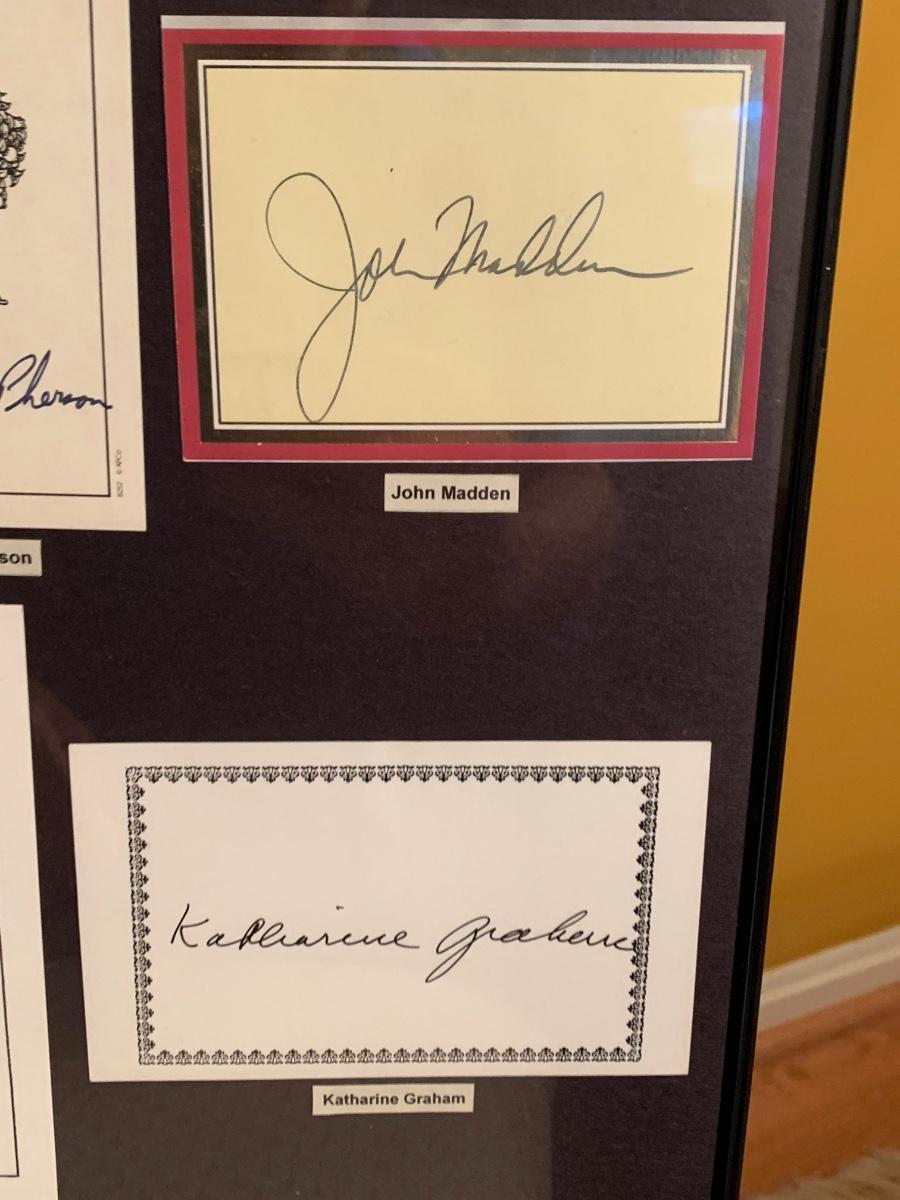 John Madden
Pherson
8252 © APCo
John Madden
son
Katharine Graham
Katharine Graham